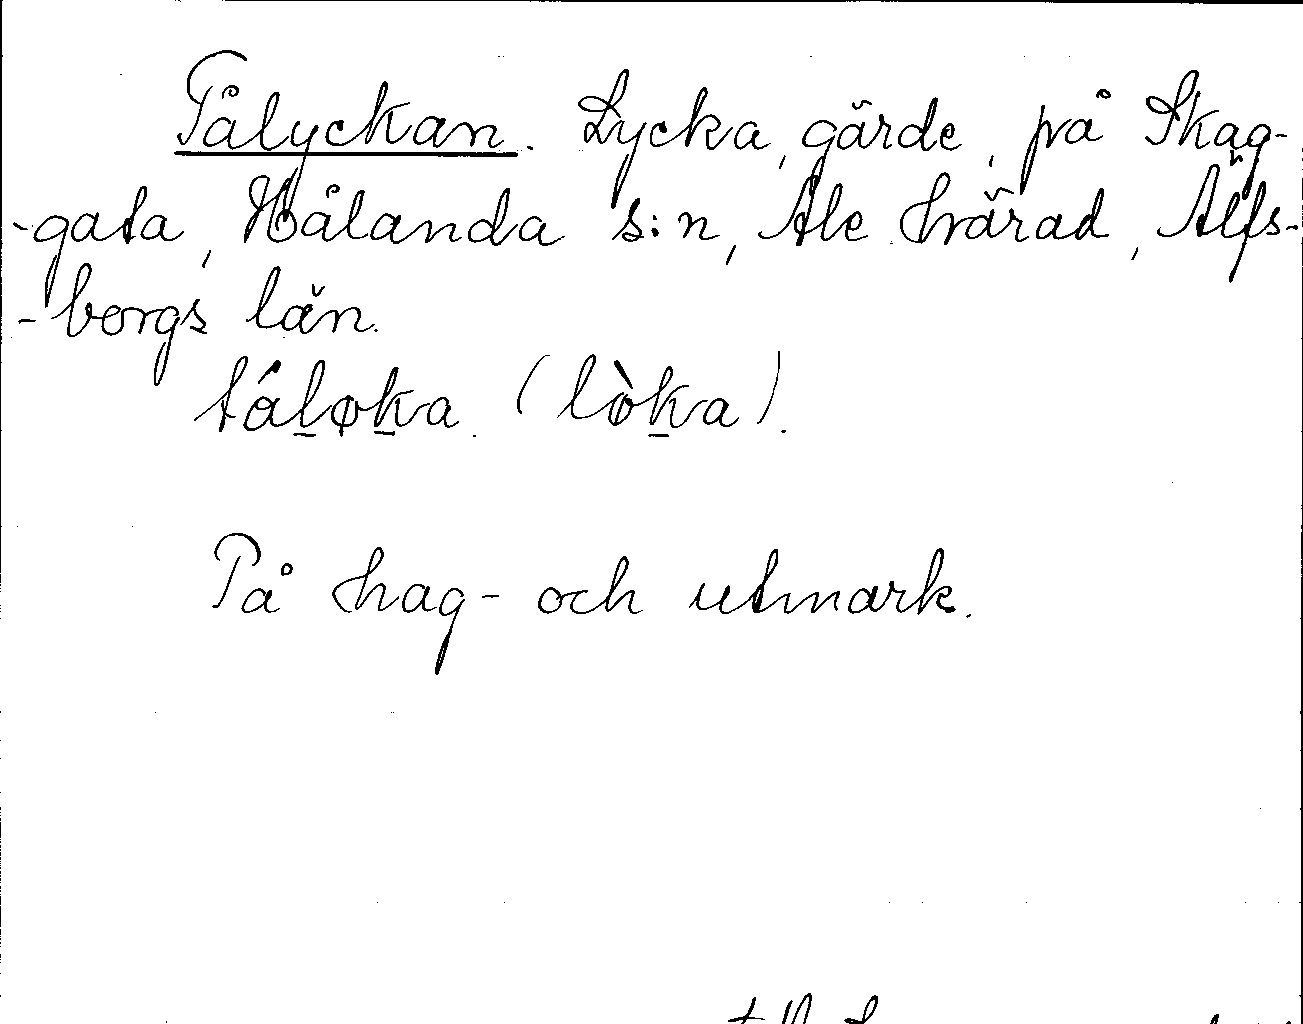 Tålyckan. Lycka, gärde, på Skag-
-gata, Hålanda s:n, Ale härad, Älfs-
-borgs län.
tål̲øk̲a. (lòk̲a).
På hag- och utmark.